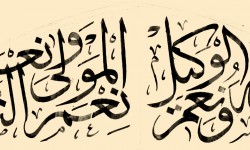 ونعم الوكيل
نعم المولى ونعم